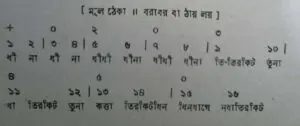 [ মূল ঠেকা ॥ বরাবর বা ঠায় লয় ]
+ ০ ২ ০ ৩
১ ২ | ৩ ৪ | ৫ ৬ | ৭ ৮ | ৯ ১০ |
ধী না ধী ধীনা ধীনা তি-তিরকিট তুনা
৪ ৫ ০
১১ ১২ | ১৩ ১৪ | ১৫ ১৬
ধা তিরকিট তুনা কত্তা তিরকিটধিন ধিনধাগে নধাতিরকিট